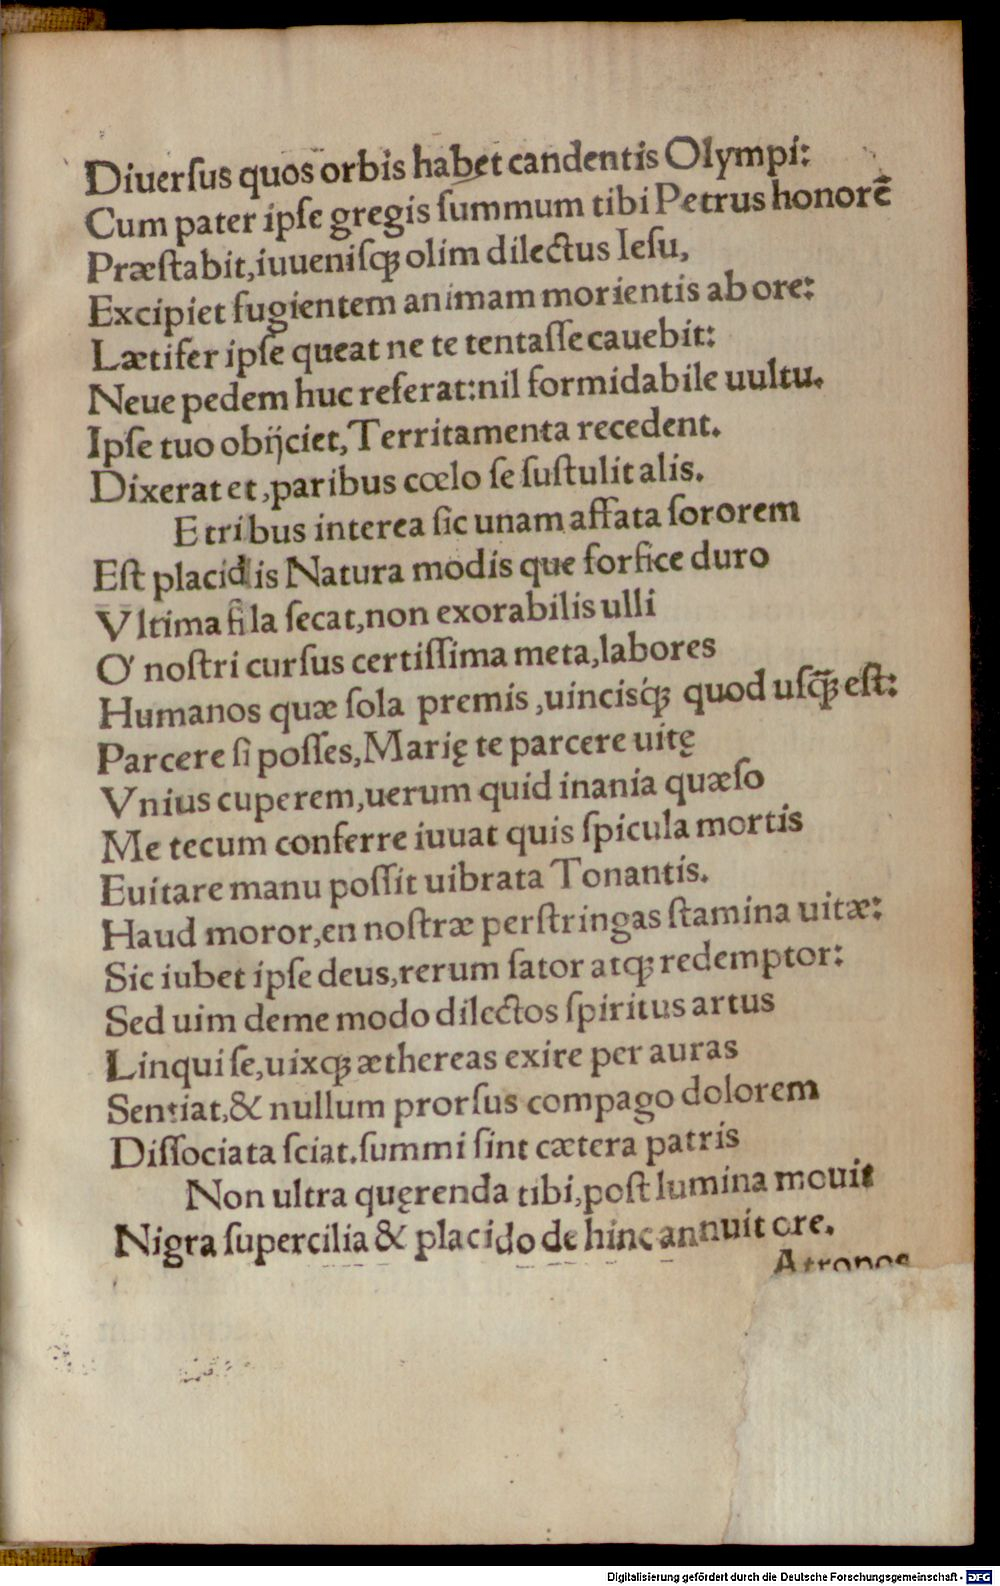 Diuerſus quos orbis habet candentis Olympi:
Cum pater ipſe gregis ſummum tibi Petrus honorē
Præſtabit,iuueniſqꝫ olim dilectus Ieſu,
Excipiet fugientem animam morientis ab ore:
Lætifer ipſe queat ne te tentaſſe cauebit:
Neue pedem huc referat:nil formidabile uultu.
Ipſe tuo obijciet,Territamenta recedent.
Dixerat et,paribus cœlo ſe ſuſtulit alis.
E tribus interea ſic unam affata ſororem
Eſt placidis Natura modis que forfice duro
Vltima fila ſecat,non exorabilis ulli
O' noſtri curſus certiſſima meta,labores
Humanos quæ ſola premis,uincisq́ꝫ quod uſq̄ꝫ eſt:
Parcere ſi poſſes,Marię te parcere uitę
Vnius cuperem,uerum quid inania quæſo
Me tecum conferre iuuat quis ſpicula mortis
Euitare manu poſſit uibrata Tonantis.
Haud moror,en noſtræ perſtringas ſtamina uitæ:
Sic iubet ipſe deus,rerum ſator atqꝫ redemptor:
Sed uim deme modo dilectos ſpiritus artus
Linqui ſe,uixqꝫ æthereas exire per auras
Sentiat,& nullum prorſus compago dolorem
Diſſociata ſciat.ſummi ſint cætera patris
Non ultra quęrenda tibi,poſt lumina mouit
Nigra ſupercilia & placido de hinc annuit ore.
Atropos
Digitalisierung gefördert durch die Deutsche Forschungsgemeinschaft - DFG